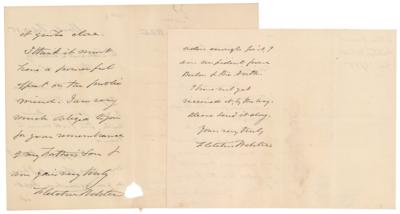 it quite clear.
I think it must
have a powerful
effect on the public
mind. I am very
much obliged to you
for your remembrance
of my Father's Son &
am yours very truly
Fletcher Webster
enough for it I
am confident from
to the North.
I have not yet
received it, by the way.
Please send it along.
Yours very truly
Fletcher Webster